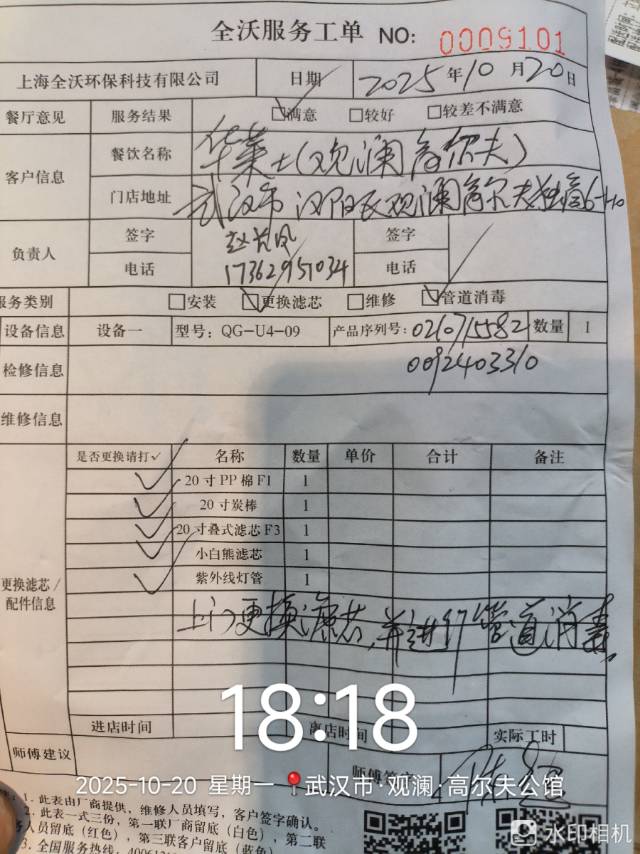 全沃服务工单 NO: 0009101
上海全沃环保科技有限公司 日期 2025年10月20日
餐厅意见 服务结果 ☑满意 □较好 □较差不满意
客户信息 餐饮名称 华莱士(观澜高尔夫)
门店地址 武汉市汉阳区观澜高尔夫独商6-110
负责人 签字 签字
电话 17362951034 电话
服务类别 □安装 ☑更换滤芯 □维修 ☑管道消毒
设备信息 设备一 型号: QG-U4-09 产品序列号: 0210715582 数量 1
检修信息 0092403310
维修信息
是否更换请打✓ 名称 数量 单价 合计 备注
✓ 20寸PP棉F1 1
✓ 20寸炭棒 1
✓ 20寸叠式滤芯F3 1
✓ 小白熊滤芯 1
✓ 紫外线灯管 1
更换滤芯/
配件信息
上门更换滤芯,并进行管道消毒。
18:18
进店时间 离店时间 实际工时
师傅建议 师傅签字
2025-10-20 星期一 武汉市·观澜·高尔夫公馆
1. 此表由厂商提供,维修人员填写,客户签字确认。
2. 此表一式三份,第一联厂商留底(白色),第二联
人员留底(红色),第三联客户留底(蓝色)
3. 全国服务热线: 
水印相机